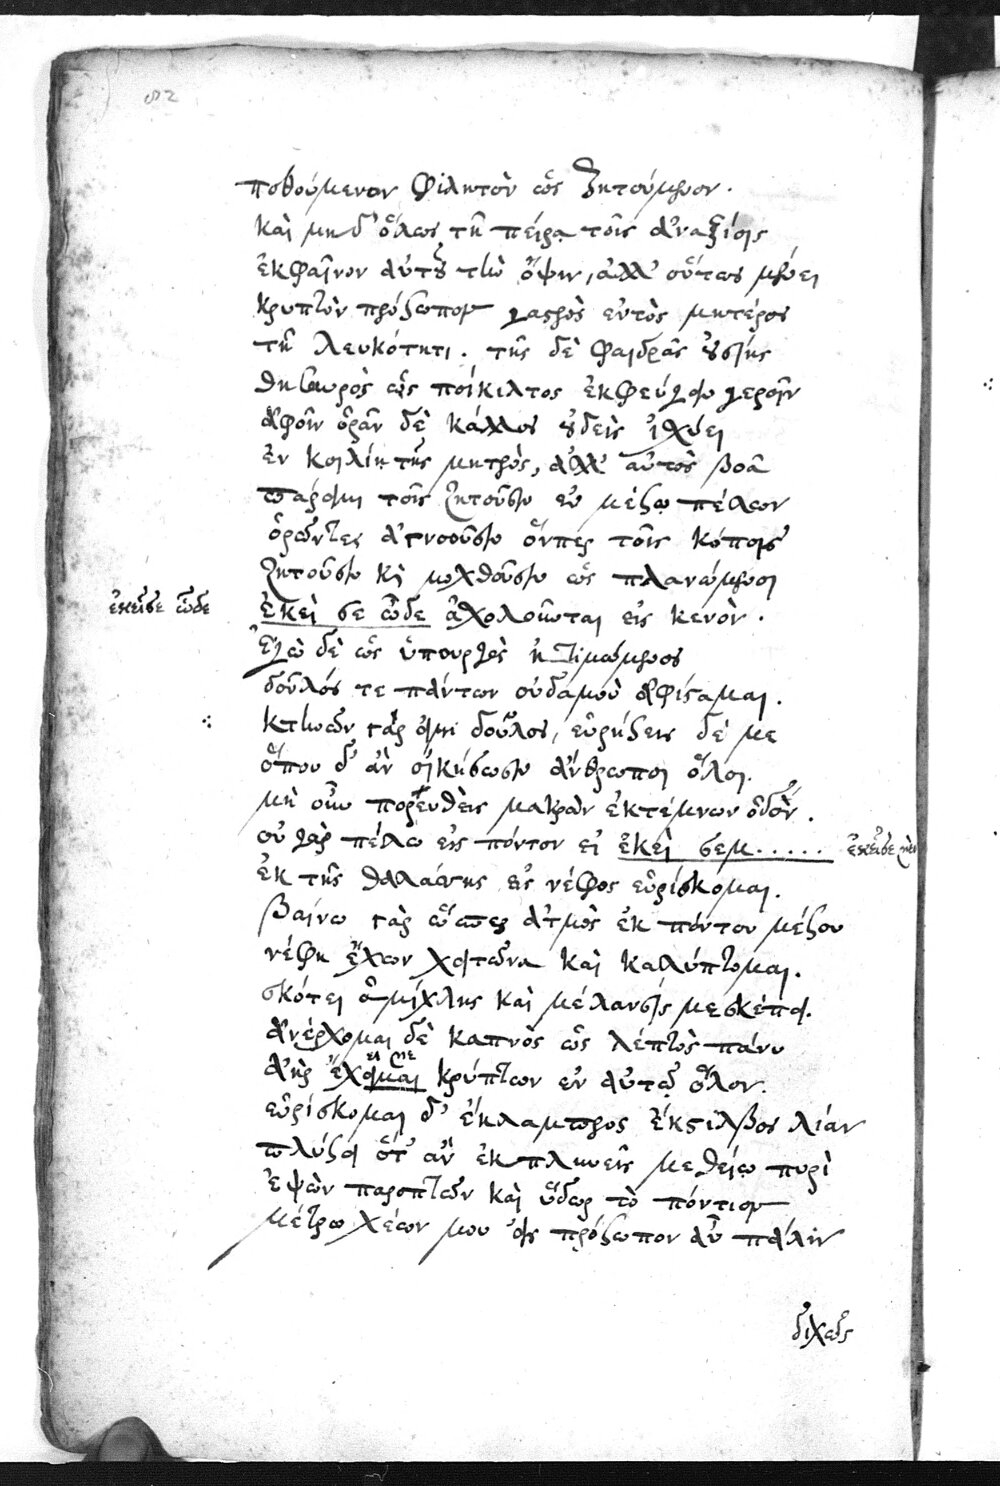 ποθούμενον φίλητὸν ὡς ζητούμενον.
καὶ μηδ' ὅλως τῇ πείρᾳ τοῖς ἀναξίοις
ἐκφαῖνον αὐτοῦ τὴν ὄψιν, ἀλλ' οὕτως μένει
κρυπτὸν πρόσωπον γαστρὸς ἐντὸς μητέρος
τῇ λευκότητι. τῆς δὲ φαιδρᾶς οὐσίης
θησαυρὸς ὡς ποίκιλτος ἐκφεύγω χεροῖν
ἀφῶν ὁρᾶν δὲ κάλλος οὐδεὶς ἰσχύει
ἐν κοιλίῃ τῆς μητρὸς, ἀλλ' αὐτὸς βοᾶ
πάρειμι τοῖς ζητοῦσιν ἐν μέσῳ πέλων
ὁρῶντες ἀγνοοῦσιν ὅνπερ τοῖς κόποις
ζητοῦσιν καὶ μοχθοῦσιν ὡς πλανώμενοι
ἐκεῖσε ὧδε
ἐκεὶ σε ὧδε ἀσχολοῦνται εἰς κενὸν.
ἐγὼ δὲ ὡς ὑπουργὸς ἠτιμώμενος
δοῦλός τε πάντων οὐδαμοὺ ἀφίσαμαι.
κτηνῶν γάρ εἰμι δοῦλος, εὑρήσεις δέ με
ὅπου δ' ἂν οἰκήσωσιν ἄνθρωποι ὅλοι.
μὴ οὖν πορευθεὶς μακρὰν ἐκτέμνων ὁδὸν.
οὐ γὰρ πέλω εἰς πόντον εἰ ἐκεὶ σεμ.....
ἐκεῖσε
ἐκ τῆς θαλάσσης εἰς νέφος εὑρίσκομαι.
βαίνω γὰρ ὥσπερ ἀτμὸς ἐκ πόντου μέσου
νέφη ἔχων χιτῶνα καὶ καλύπτομαι.
σκότει ὀμίχλης καὶ μέλανσίς με σκέπει.
ἀνέρχομαι δὲ καπνὸς ὡς λέπτὸς πάνυ
ἀὴρ ἔχομαι κρύπτων ἐν αὐτῷ ὅλον.
εὑρίσκομαι δ' ἔκλαμπρος ἔκστιλβος λίαν
πλύσει ὅτ' ἂν ἐκπλυνεῖς με θείῳ πυρὶ
ἑψῶν παροπτῶν καὶ ὕδωρ τὸ πόντιον
μέτρῳ χέων μου εἰς πρόσωπον αὖ πάλιν
διχῶς